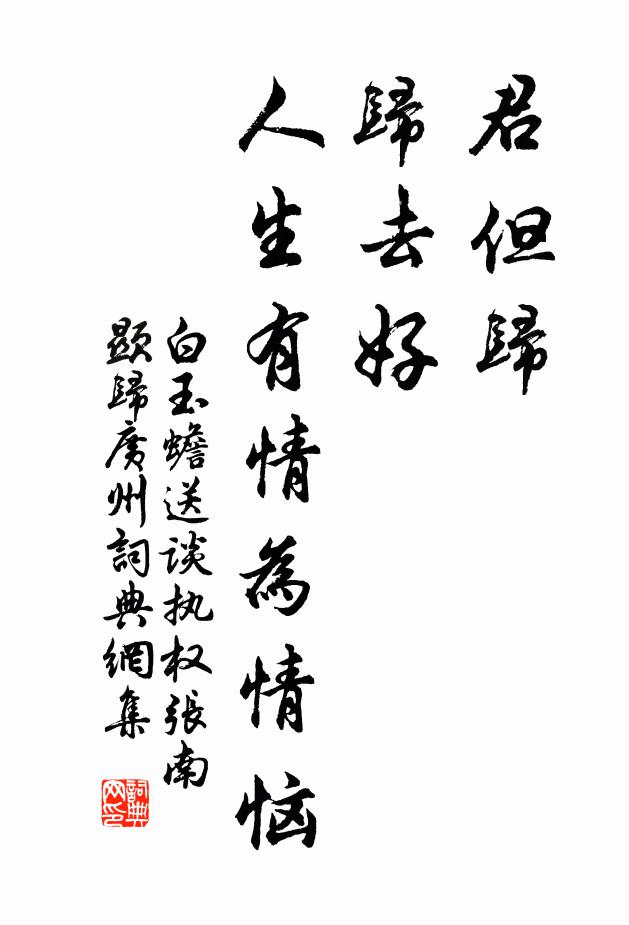 君但歸
歸去好
人生有情為情恼
白玉蟾送谈执权張南
顯歸廣州詞典網集
詞典
网印